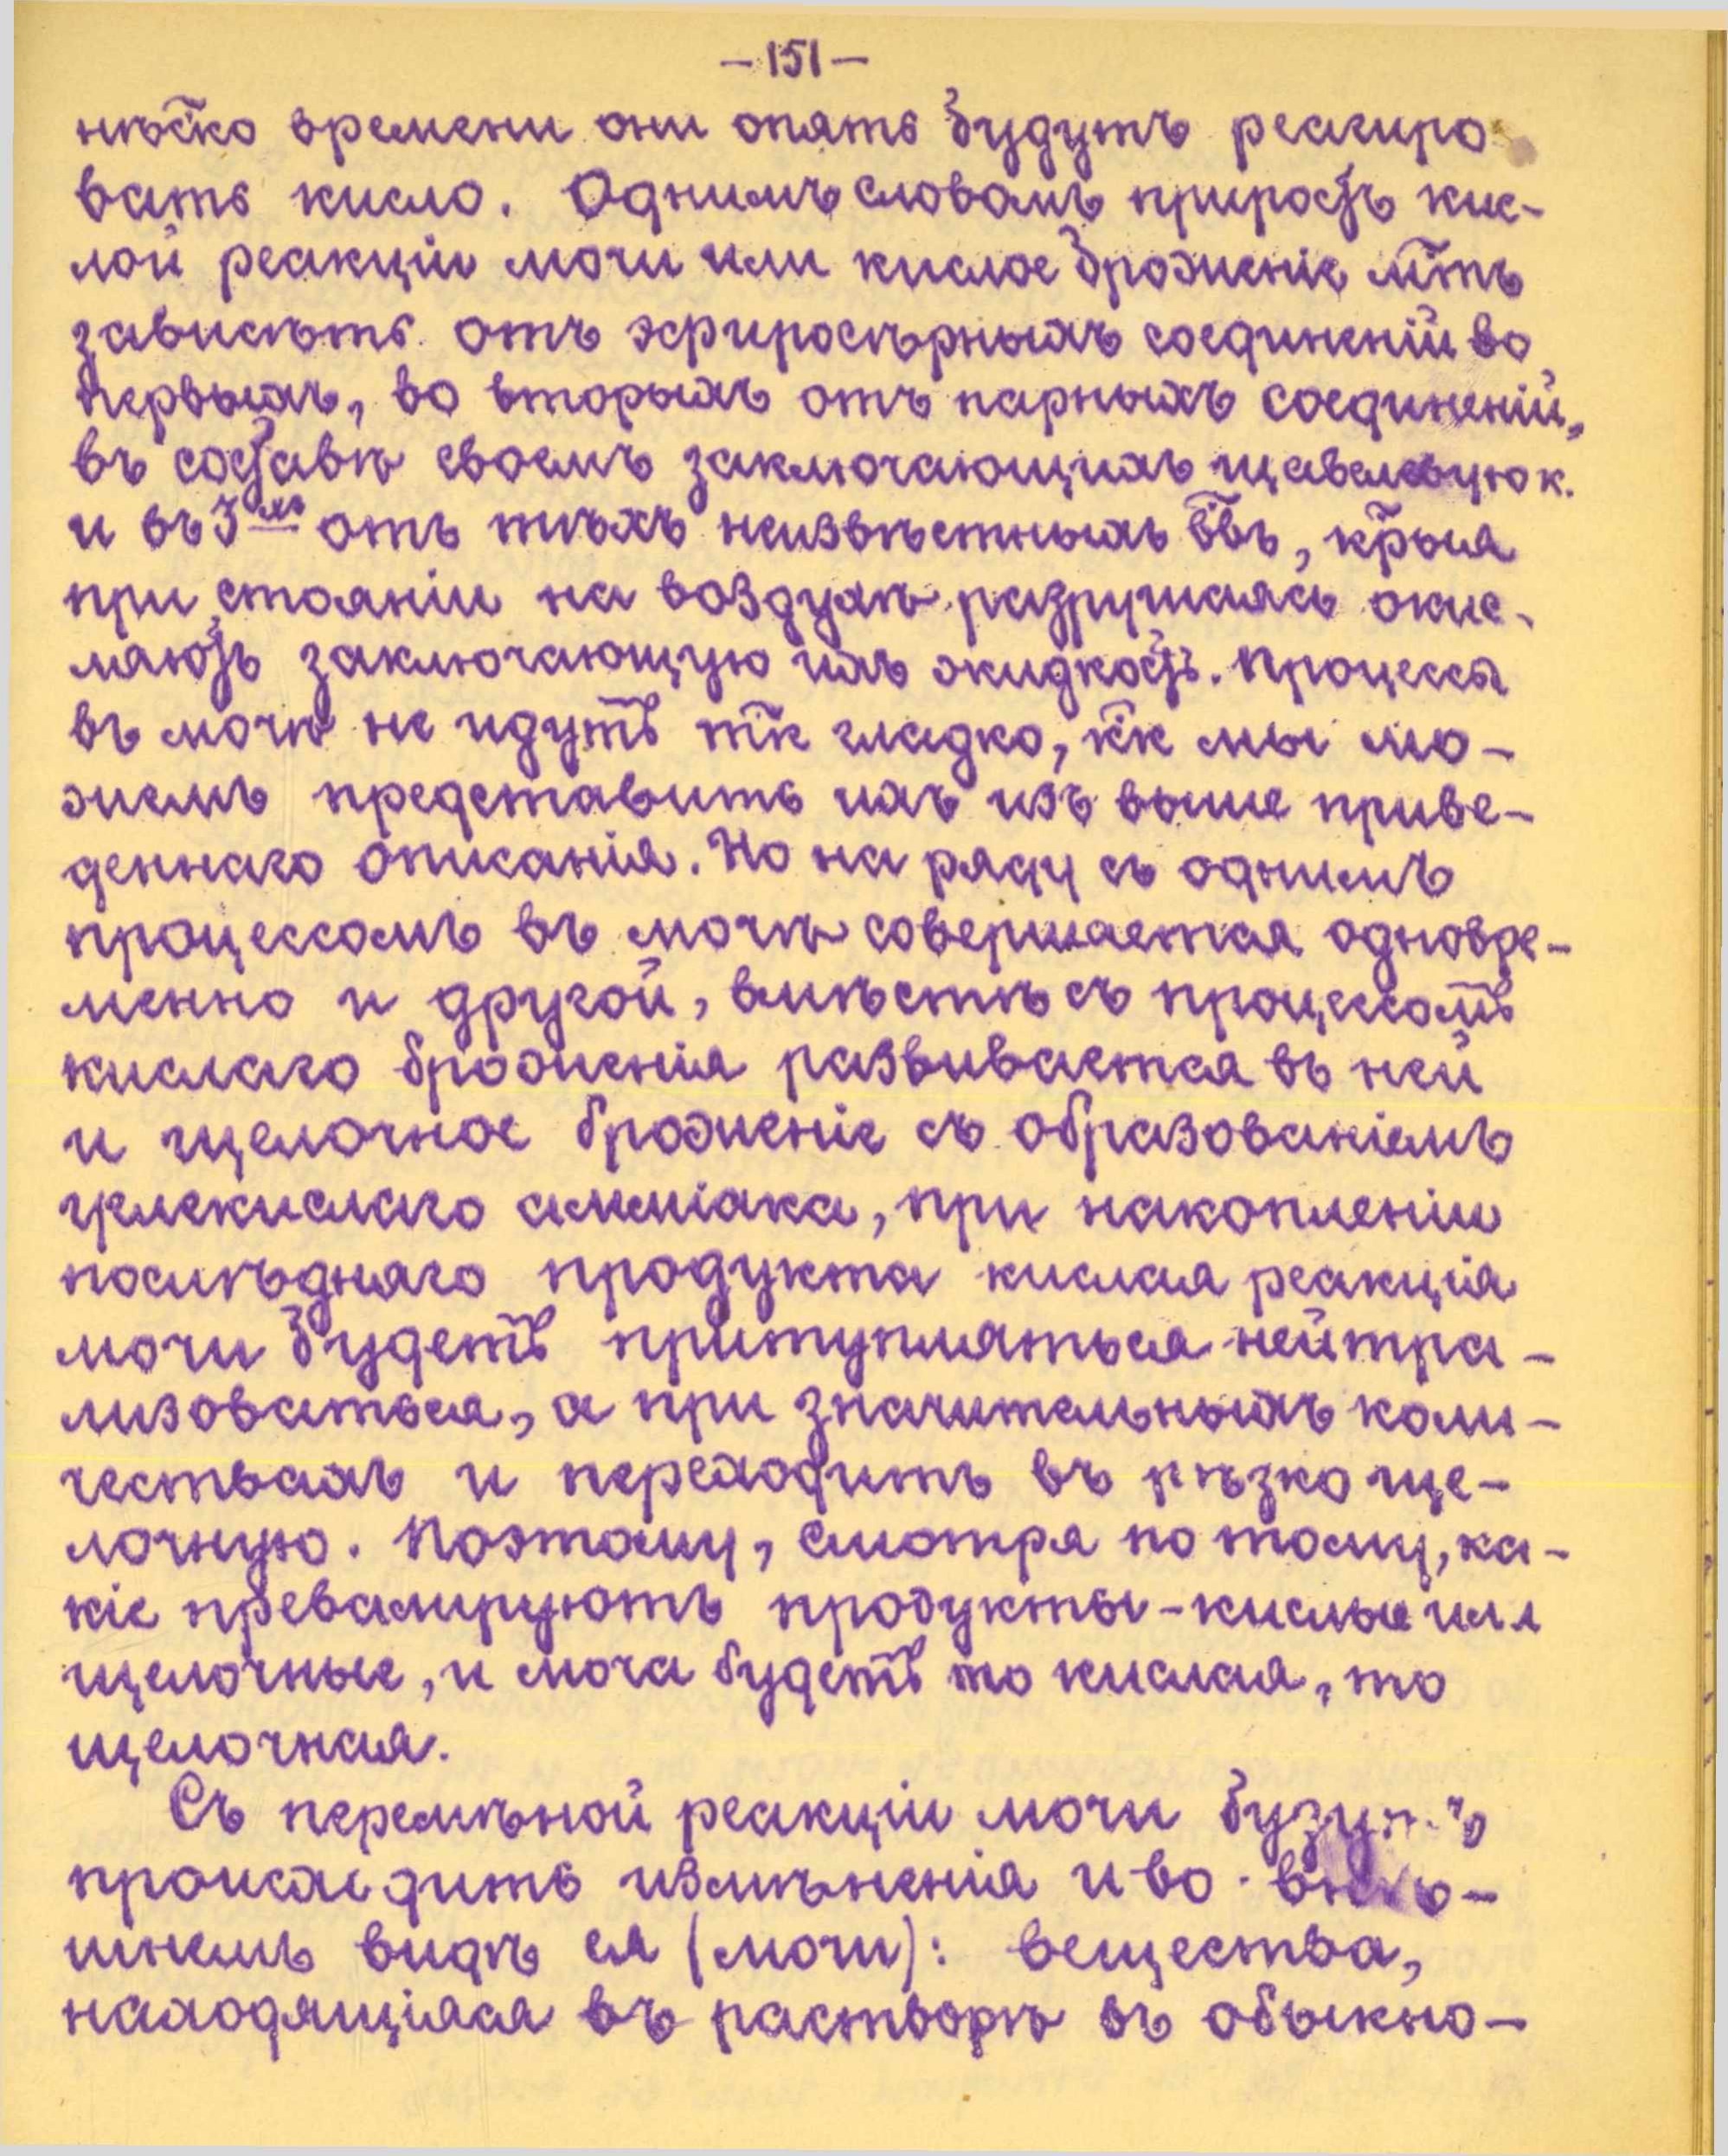 — 151 —
нѣско времени они опять будутъ реагиро
вать кисло. Однимъ словомъ приростъ кис-
лой реакціи мочи или кислое броженіе м̃тъ
зависѣть отъ эфиросѣрныхъ соединеній во
первыхъ, во вторыхъ отъ парныхъ соединеній,
въ составѣ своемъ заключающихъ щавелевую к.
и въ 3их отъ тѣхъ неизвѣстныхъ в̃въ, к̃рыя
при стояніи на воздухѣ разрушаясь окис-
ляютъ заключающую ихъ жидкость. Процессы
въ мочѣ не идутъ т̃к гладко, к̃к мы мо-
жемъ представить ихъ изъ выше приве-
деннаго описанія. Но на ряду съ однимъ
процессомъ въ мочѣ совершается одновре-
менно и другой, вмѣстѣ съ процессомъ
кислаго броженія развивается въ ней
и щелочное броженіе съ образованіемъ
углекислаго амміака, при накопленіи
послѣдняго продукта кислая реакція
мочи будетъ притупляться нейтра-
лизоваться, а при значительныхъ коли-
чествахъ и переходить въ рѣзко ще-
лочную. Поэтому, смотря по тому, ка-
кіе превалируютъ продукты - кислые или
щелочные, и моча будетъ то кислая, то
щелочная.
Съ перемѣной реакціи мочи будутъ
происходить измѣненія и во внѣ-
шнемъ видѣ ея (мочи): вещества,
находящіяся въ растворѣ въ обыкно-